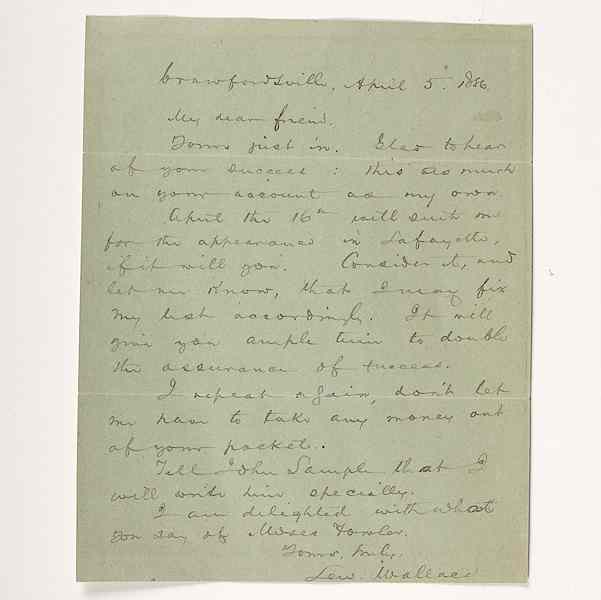 Crawfordsville, April 5. 1886.
My dear friend.
Yours just in. Glad to hear
of your success: this as much
on your account as my own.
April the 16th will suit me
for the appearance in Lafayette,
if it will you. Consider it, and
let me know, that I may fix
my list accordingly. It will
give you ample time to double
the assurance of success.
I repeat again, don't let
me have to take any money out
of your pocket.
Tell John Sample that I
will write him specially.
I am delighted with what
you say of Moses Fowler.
Yours, truly,
Lew. Wallace